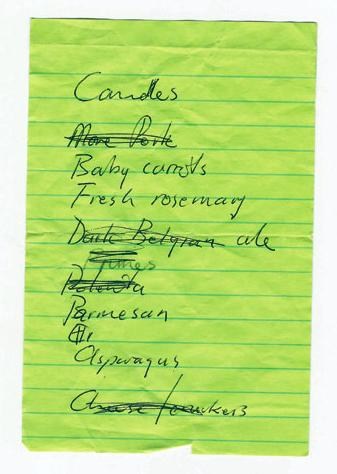 Candles
More Pork
Baby carrots
Fresh rosemary
Dark Belgian ale
Limes
Polenta
Parmesan
Asparagus
Cheese / crackers